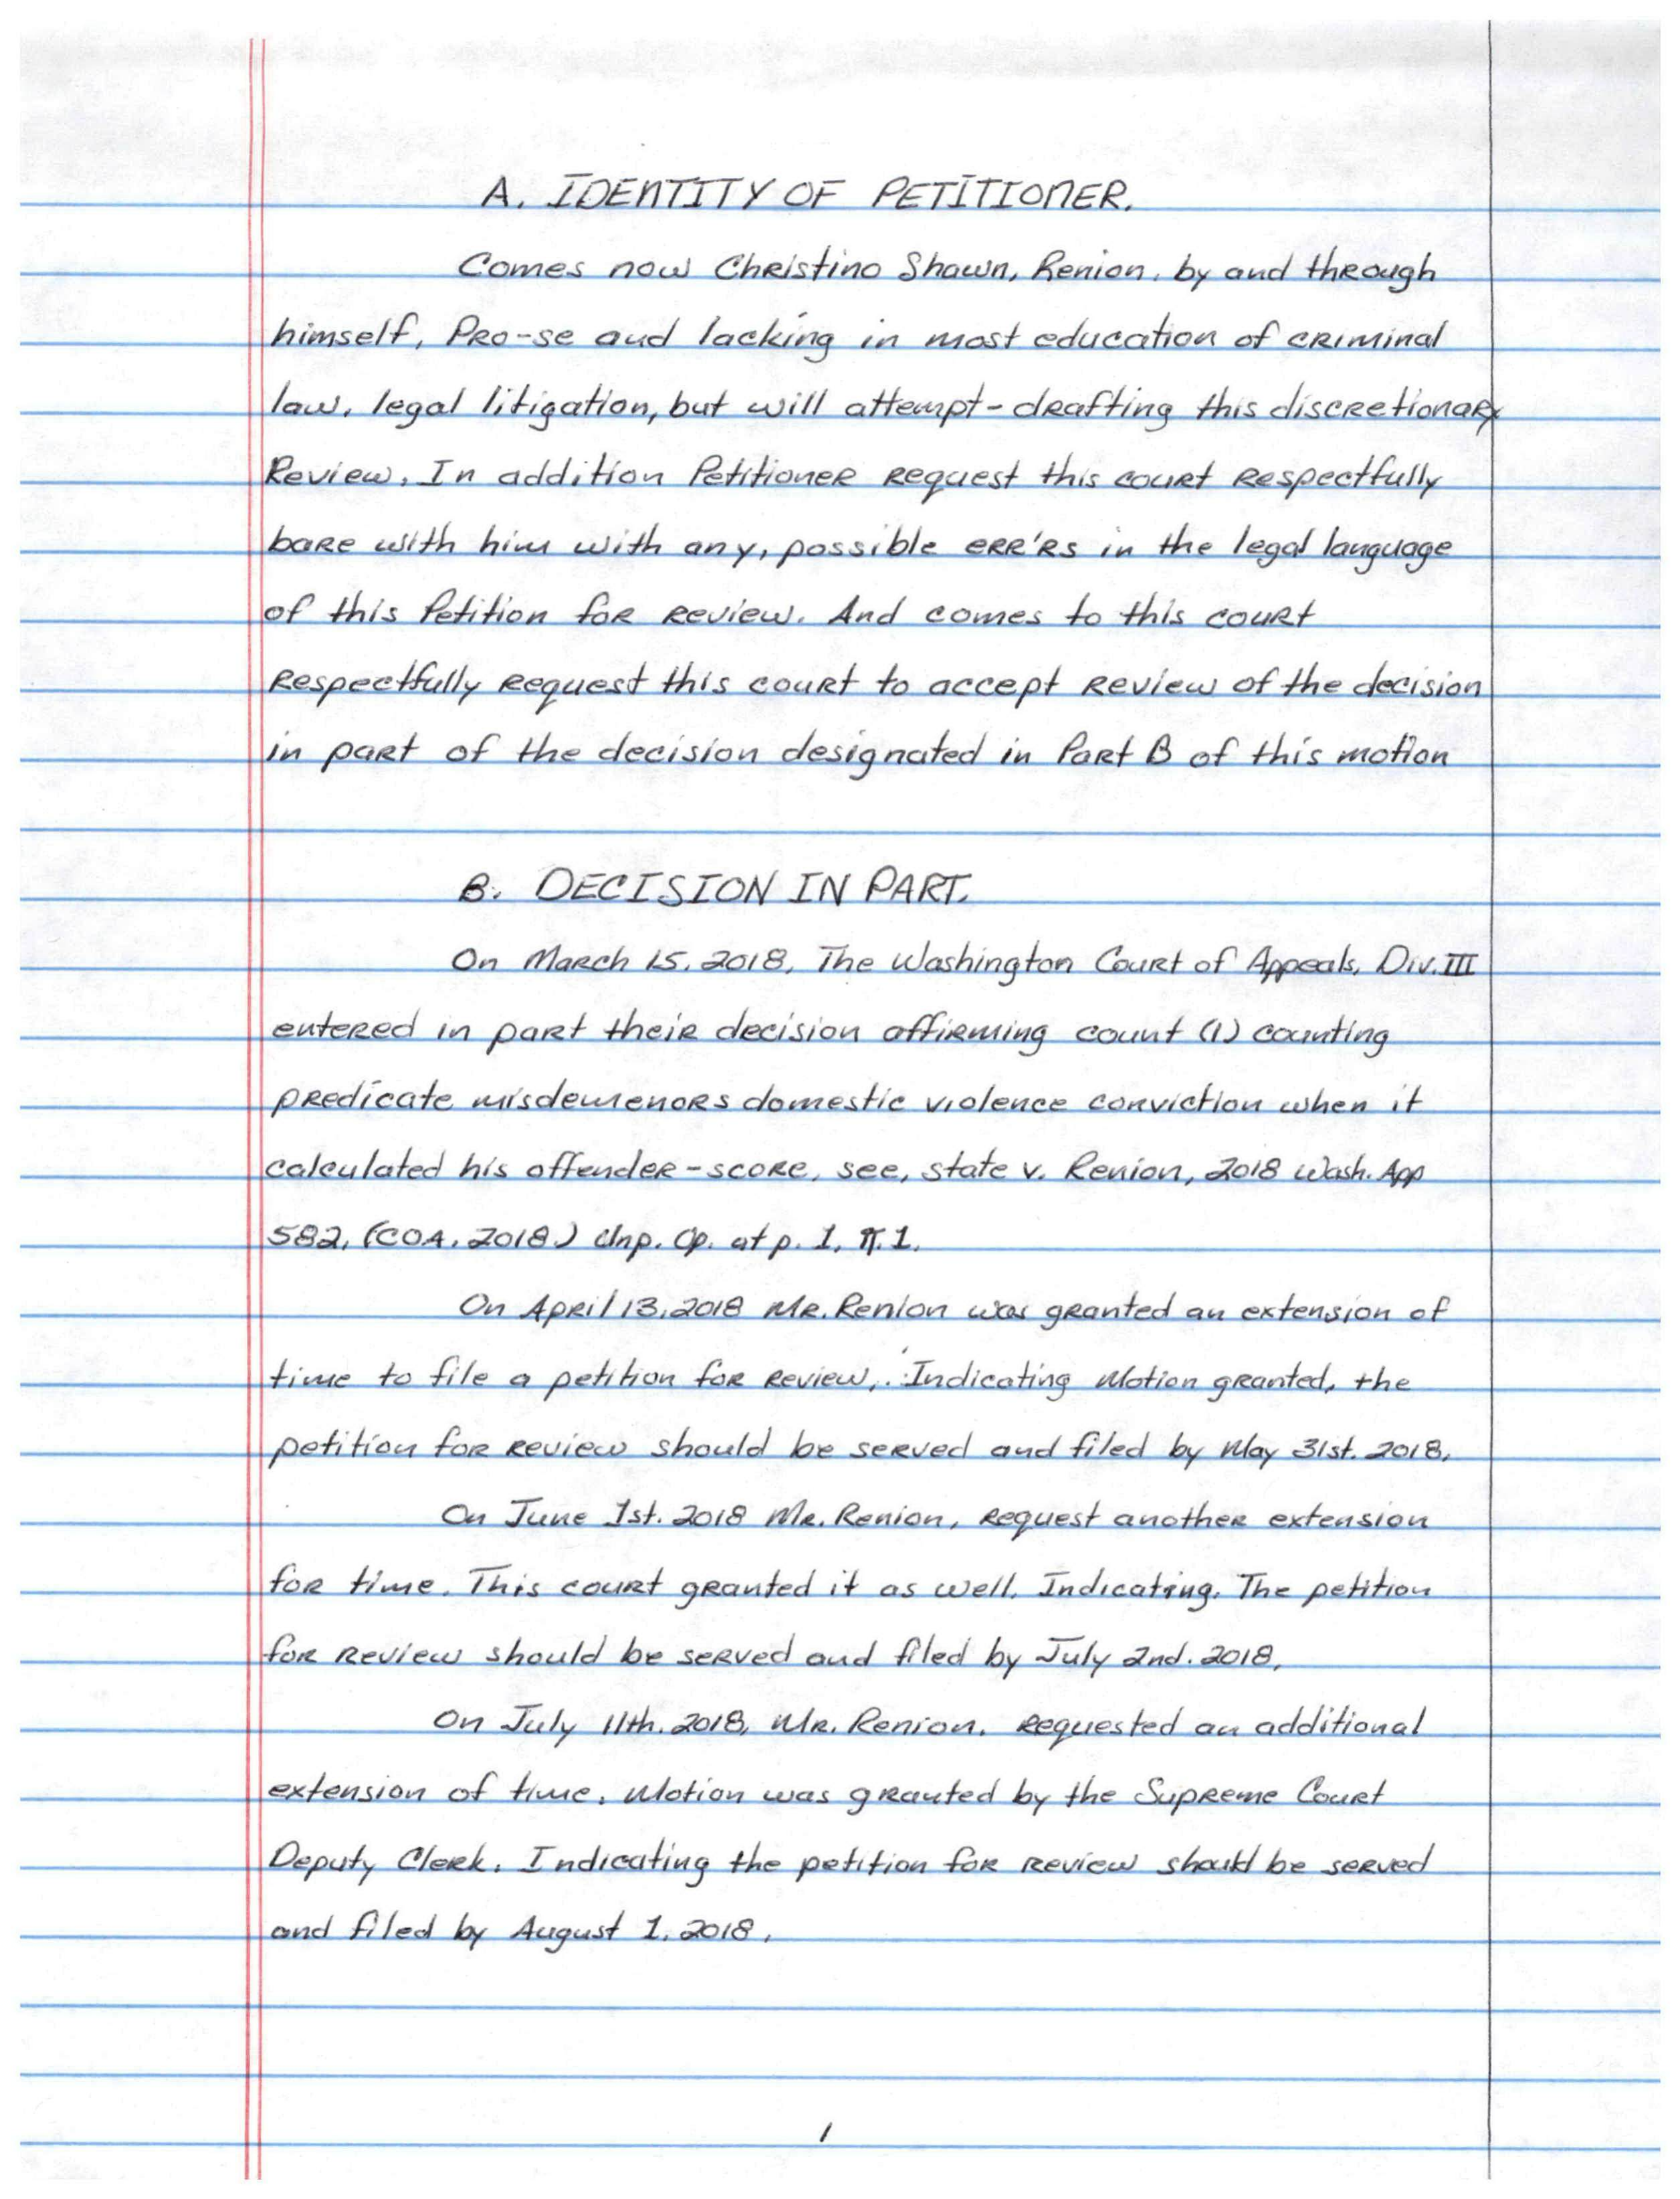 A. IDENTITY OF PETITIONER.
Comes now Christino Shawn, Renion, by and through
himself, Pro-se and lacking in most education of criminal
law, legal litigation, but will attempt-drafting this discretionary
Review. In addition Petitioner request this court respectfully
bare with him with any, possible err'rs in the legal language
of this Petition for review. And comes to this court
respectfully request this court to accept review of the decision
in part of the decision designated in Part B of this motion
B. DECISION IN PART.
On March 15, 2018, The Washington Court of Appeals, Div. III
entered in part their decision affirming count (1) counting
predicate misdemenors domestic violence conviction when it
calculated his offender-score, see, state v. Renion, 2018 Wash. App
582, (COA. 2018) Unp. Op. at p. 1, ¶. 1.
On April 13, 2018 Mr. Renion was granted an extension of
time to file a petition for review,. Indicating Motion granted, the
petition for review should be served and filed by May 31st. 2018,
On June 1st. 2018 Mr. Renion, request another extension
for time. This court granted it as well. Indicating. The petition
for review should be served and filed by July 2nd. 2018,
On July 11th. 2018, Mr. Renion. requested an additional
extension of time. Motion was granted by the Supreme Court
Deputy Clerk. Indicating the petition for review should be served
and filed by August 1, 2018,
1